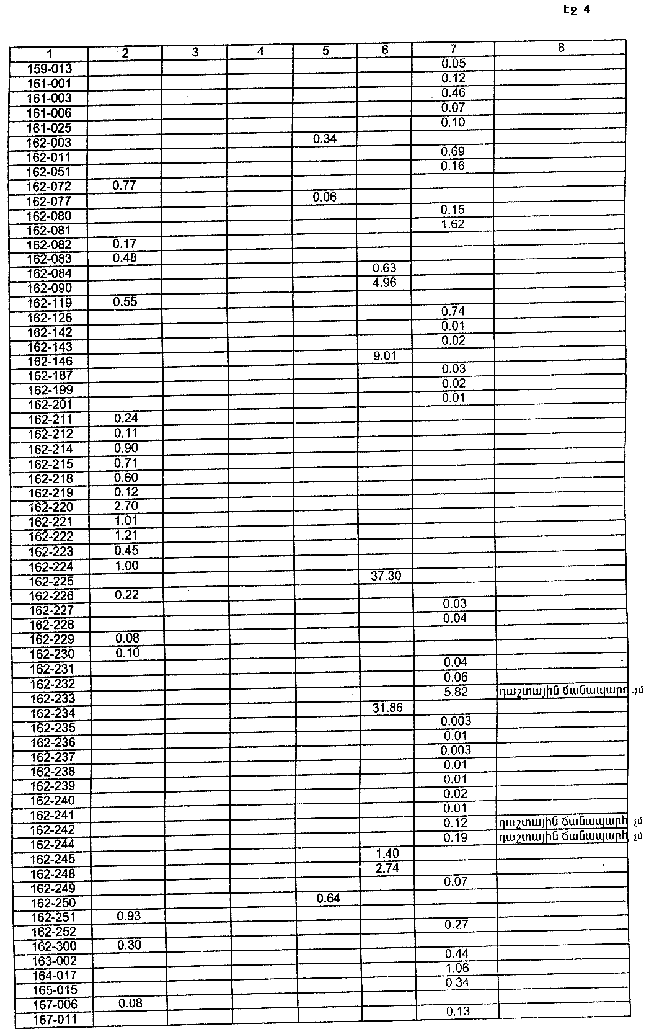 Էջ 4
1 2 3 4 5 6 7 8
159-013 0.05
161-001 0.12
161-003 0.46
161-006 0.07
161-025 0.10
162-003 0.34
162-011 0.69
162-051 0.16
162-072 0.77
162-077 0.06
162-080 0.15
162-081 1.62
162-082 0.17
162-083 0.48
162-084 0.63
162-090 4.96
162-119 0.55
162-126 0.74
162-142 0.01
162-143 0.02
162-146 9.01
162-187 0.03
162-199 0.02
162-201 0.01
162-211 0.24
162-212 0.11
162-214 0.90
162-215 0.71
162-218 0.60
162-219 0.12
162-220 2.70
162-221 1.01
162-222 1.21
162-223 0.45
162-224 1.00
162-225 37.30
162-226 0.22
162-227 0.03
162-228 0.04
162-229 0.08
162-230 0.10
162-231 0.04
162-232 0.06
162-233 5.82 դաշտային ճանապարհ
162-234 31.86
162-235 0.003
162-236 0.01
162-237 0.003
162-238 0.01
162-239 0.01
162-240 0.02
162-241 0.01
162-242 0.12 դաշտային ճանապարհ
162-244 0.19 դաշտային ճանապարհ
162-245 1.40
162-248 2.74
162-249 0.07
162-250 0.64
162-251 0.93
162-252 0.27
162-300 0.30
163-002 0.44
164-017 1.06
165-015 0.34
167-006 0.08
167-011 0.13